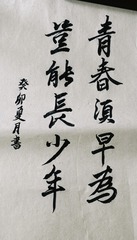 青春須早為
豈能長少年
癸卯夏月書